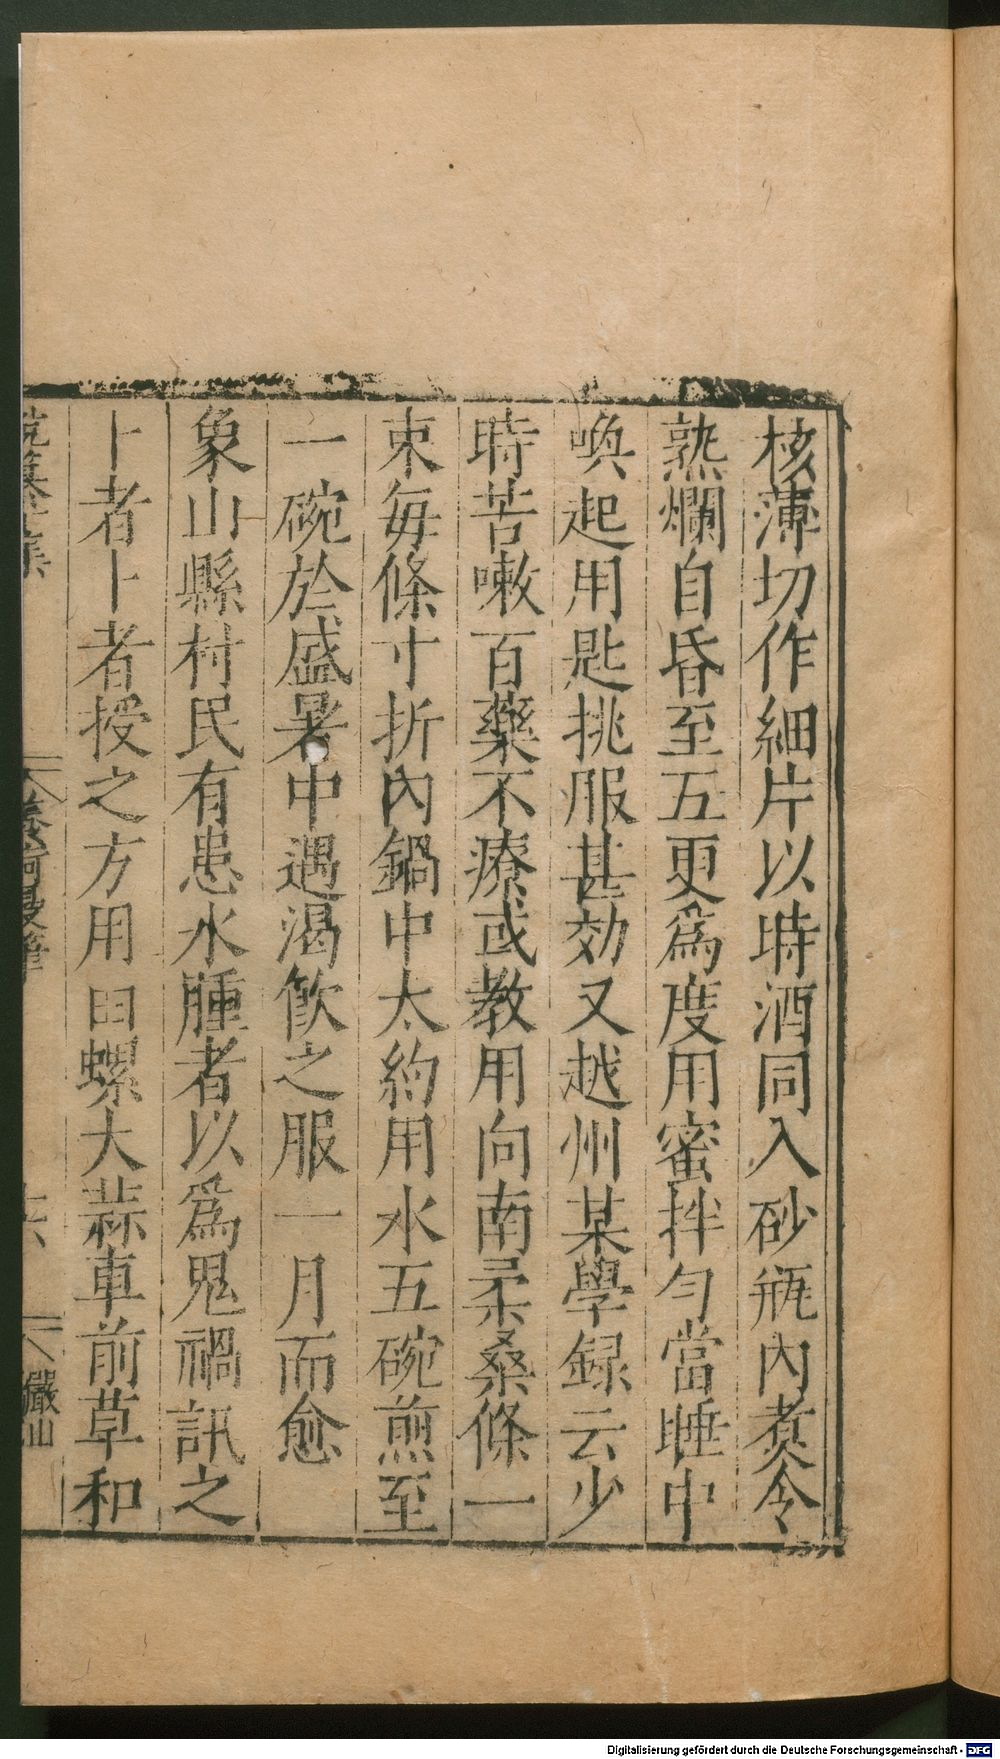 核薄切作細片以時酒同入砂瓶內煑令
熟爛自昏至五更爲度用蜜拌勻當睡中
喚起用匙挑服甚効又越州某學録云少
時苦嗽百藥不療或教用向南柔桑條一
束每條寸折內鍋中大約用水五碗煎至
一碗於盛暑中遇渴飲之服一月而愈
象山縣村民有患水腫者以爲鬼禍訊之
卜者卜者授之方用田螺大蒜車前草和
Digitalisierung gefördert durch die Deutsche Forschungsgemeinschaft - DFG